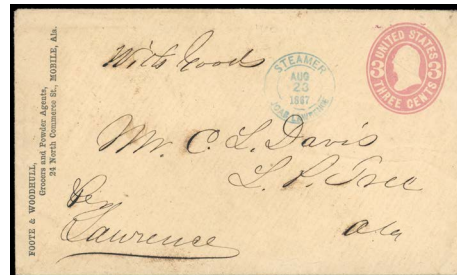 FOOTE & WOODHULL,
Grocers and Powder Agents,
24 North Commerce St., MOBILE, Ala.
With Goods
STEAMER
AUG
23
1867
UNITED STATES
3 3
THREE CENTS
Mr. C. L. Davis
L. P. Tree
Ala
Per
Lawrence